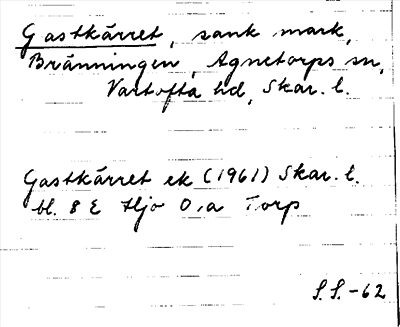 Gastkärret, sank mark,
Bränningen, Agnetorps sn,
Vartofta hd, Skar. l.
Gastkärret ek (1961) Skar. l.
bl. 8 E Hjo O, a Torp
S.S.-62